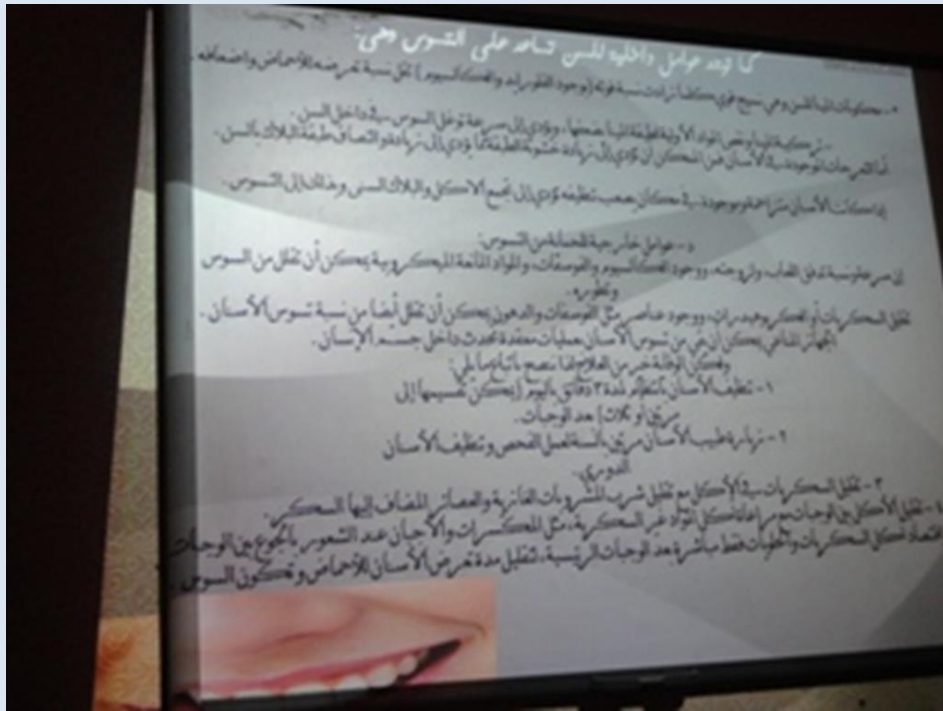 كما توجد عوامل داخليه للسن تساعد على التسوس وهي:
مكونات المينا للسن وهي نسيج قوي كلما زادت نسبة قوته (بوجود الفلورايد والكالسيوم) تقل نسبة تعرضه للأحماض واضعافه.
- تركيبة المينا ونقص المواد الأولية لطبقة المينا يضعفها، ويؤدي إلى سرعة توغل السوس في داخل السن.
أما التعرجات الموجودة في الأسنان فمن الممكن أن تؤدي إلى زيادة خشونة الطبقة مما يؤدي إلى زيادة التصاق طبقة البلاك بالسن.
إذا كانت الأسنان متزاحمة وموجودة في مكان يصعب تنظيفه تؤدي إلى تجمع الاكل والبلاك السني وبذلك إلى التسوس.
د- عوامل خارجية للحماية من التسوس:
إن سرعة ونسبة تدفق اللعاب ولزوجته، ووجود الكالسيوم والفوسفات والمواد المانعة الميكروبية يمكن أن تقلل من السوس
وتطوره.
تقليل السكريات أو الكربوهيدرات، ووجود عناصر مثل الفوسفات والدهون يمكن أن تقلل أيضا من نسبة تسوس الأسنان.
الجهاز المناعي يمكن أن يحمي من تسوس الأسنان بعمليات معقدة تحدث داخل جسم الإنسان.
ولكن الوقاية خير من العلاج لذا ننصح باتباع ما يلي:
١- تنظيف الأسنان بانتظام لمدة ٣ دقائق باليوم (يمكن تقسيمها إلى
مرتين أو ثلاث) بعد الوجبات.
٢- زيارة طبيب الأسنان مرتين بالسنة لعمل الفحص وتنظيف الأسنان
الدوري.
٣- تقليل السكريات في الأكل مع تقليل شرب المشروبات الغازية والعصائر المضاف إليها السكر.
٤- تقليل الأكل بين الوجبات مع مراعاة أكل المواد غير السكرية، مثل المكسرات والأجبان عند الشعور بالجوع بين الوجبات
أكل السكريات والحلويات فقط مباشرة بعد الوجبات الرئيسية، لتقليل مدة تعرض الأسنان للأحماض وتكون السوس.